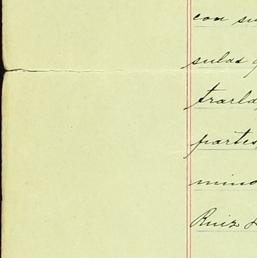 con su
sulas
trarla
partes
mino
Ruiz